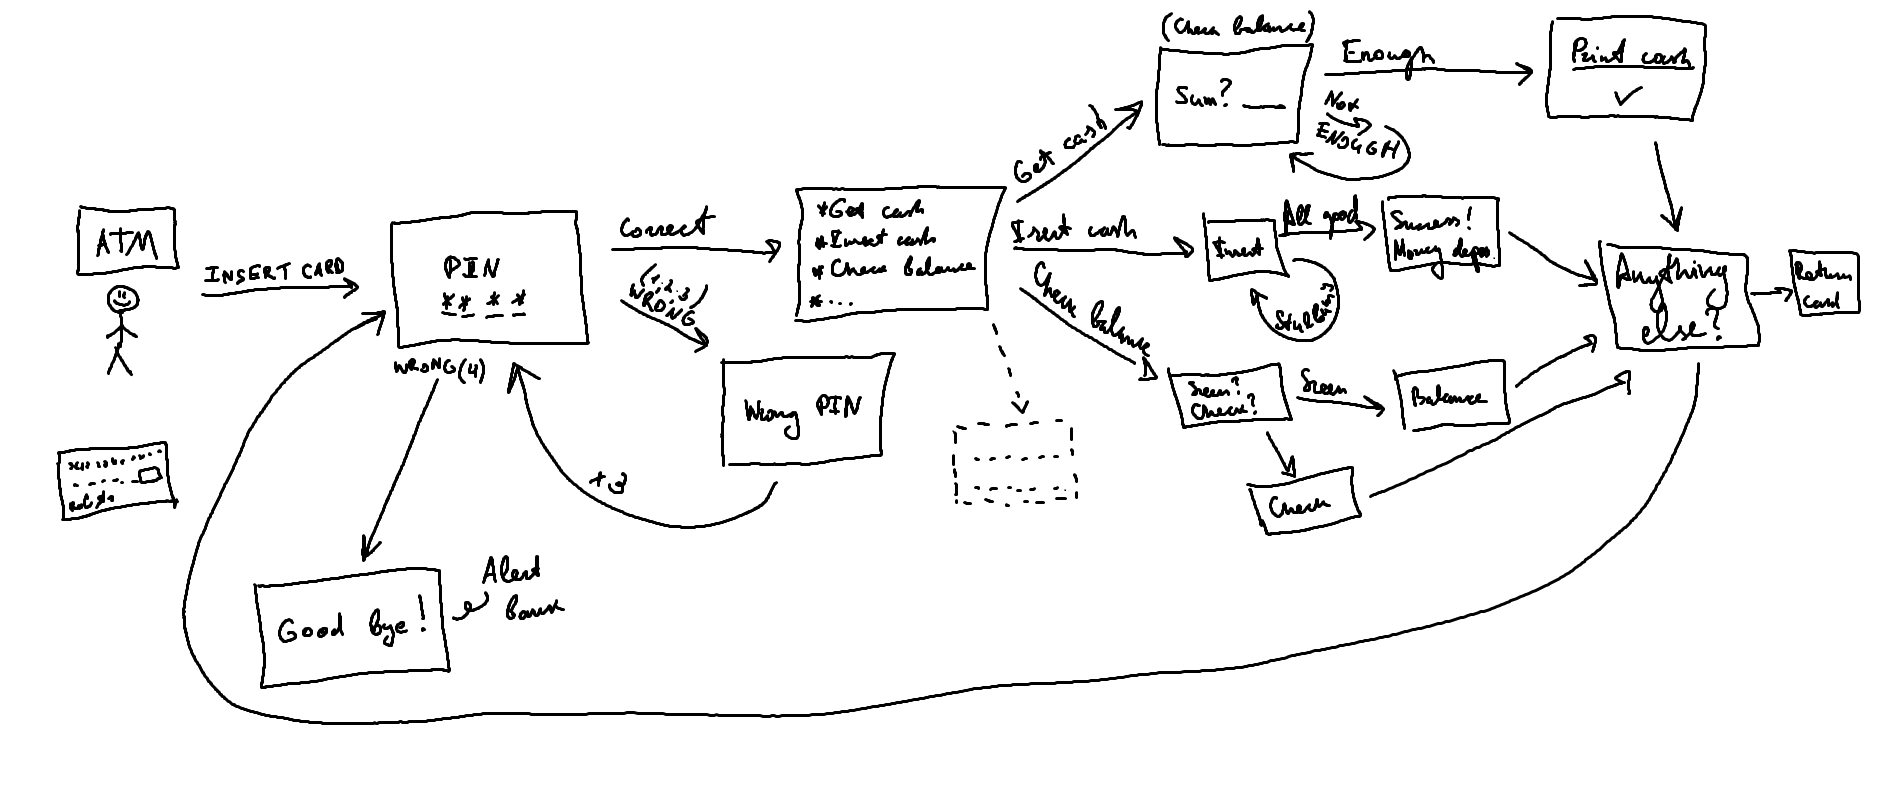 ATM
INSERT CARD
PIN
* * * *
WRONG (4)
Good Bye!
Alert
Bank
Correct
(1, 2, 3)
WRONG
Wrong PIN
x3
* Get cash
* Insert cash
* Check Balance
* ...
Get cash
(Check balance)
Sum? ___
Enough
Not
ENOUGH
Print cash
✓
Insert
All good
Success!
Money depos.
Check balance
Screen?
Check?
Balance
Check
Anything
else?
Return
card